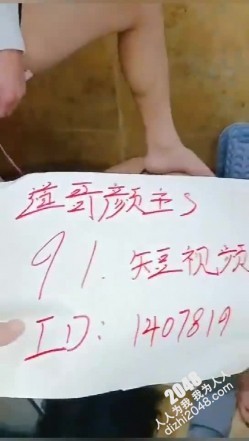 道哥颜主S
91.短视频
ID:1407819
2048
人人为我我为人人
dizhi2048.com